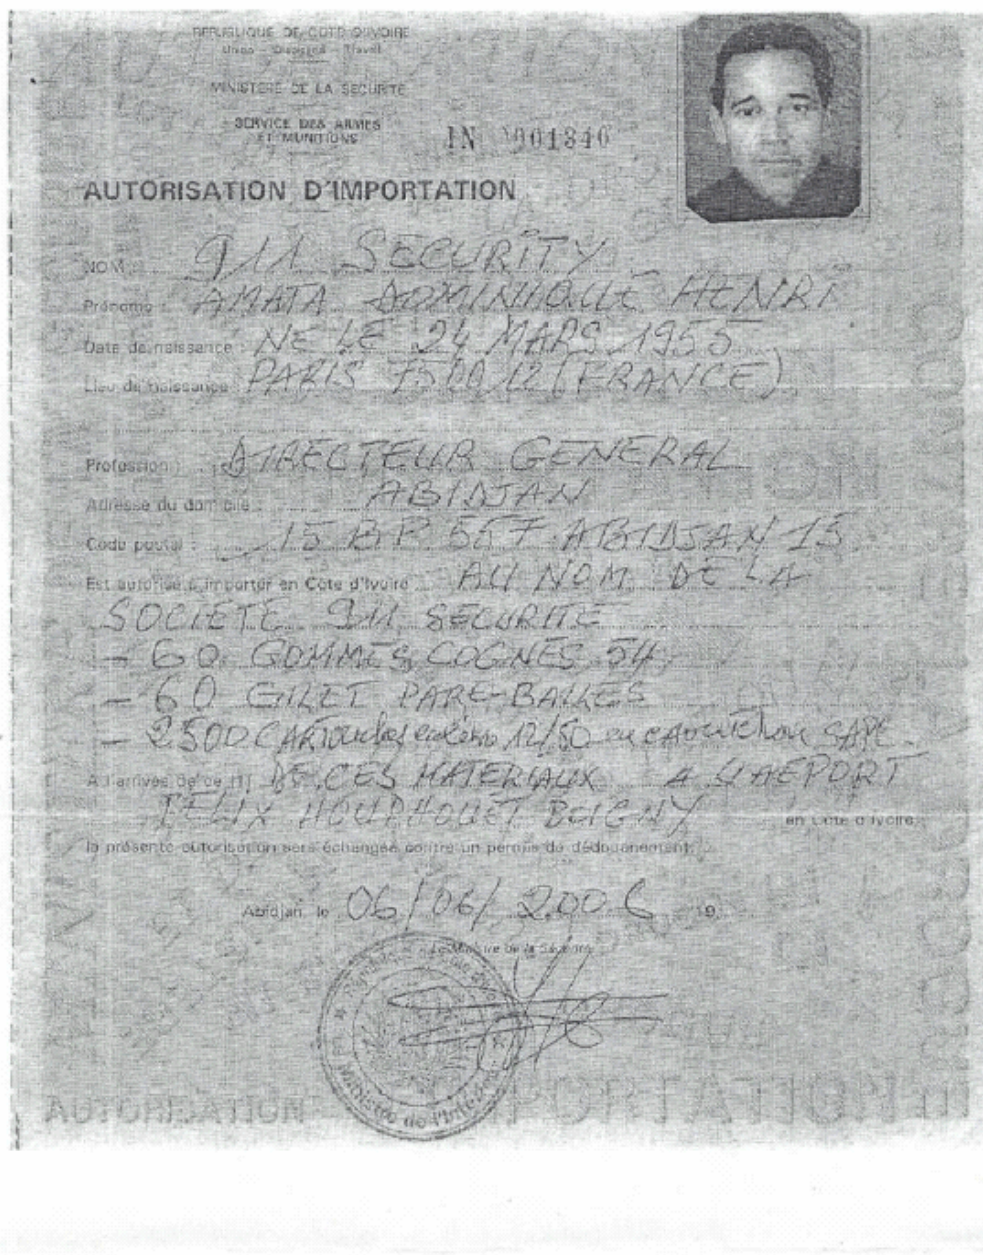 REPUBLIQUE DE COTE D'IVOIRE
Union - Discipline - Travail
MINISTERE DE LA SECURITE
SERVICE DES ARMES
ET MUNITIONS
IN 001340
AUTORISATION D'IMPORTATION
NOM : 911 SECURITY
Prénoms : AMATA DOMINIQUE HENRI
Date de naissance : NE LE 24 MARS 1955
Lieu de naissance : PARIS 75012 (FRANCE)
Profession : DIRECTEUR GENERAL
Adresse du domicile : ABIDJAN
Code postal : 15 BP 557 ABIDJAN 15
Est autorisé à importer en Côte d'Ivoire AU NOM DE LA
SOCIETE 911 SECURITE
- 60 GOMMES COGNES 54
- 60 GILET PARE-BALLES
- 2500 CARTouches calibre 12/50 en CAOUTChou SAPL
A l'arrivée de ce (1) DE CES MATERIAUX A L'AEPORT
FELIX HOUPHOUET BOIGNY en Côte d'Ivoire
la présente autorisation sera échangée contre un permis de dédouanement.
Abidjan, le 06/06/2006 19
Le Ministre de la Sécurité
Ministère de l'Intérieur
AUTORISATION